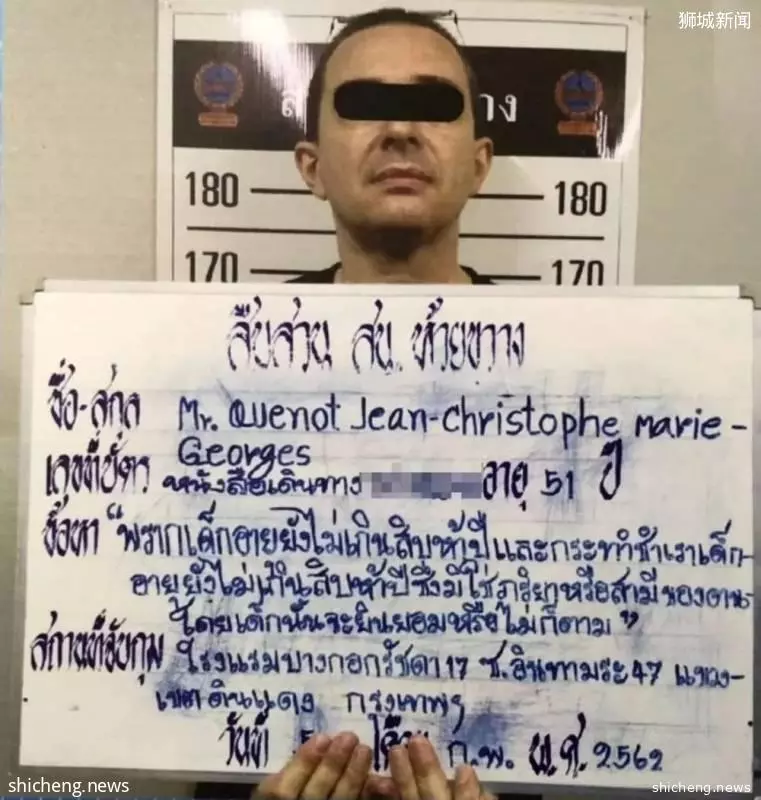 狮城新闻
ส าง
180 180
170 170
สืบสวน สน. ห้วยขวาง
ชื่อ-สกุล Mr. Quenot Jean-Christophe Marie-
Georges
เลขที่บัตร หนังสือเดินทาง อายุ 51 ปี
ข้อหา "พรากเด็กอายุยังไม่เกินสิบห้าปีและกระทำชำเราเด็ก-
อายุยังไม่เกินสิบห้าปีซึ่งมิใช่ภริยาหรือสามีของตน
โดยเด็กนั้นจะยินยอมหรือไม่ก็ตาม"
สถานที่จับกุม โรงแรมบางกอกรัชดา17 ซ.อินทามระ47 แขวง-
เขตดินแดง กรุงเทพฯ
วันที่ 5 เดือน ก.พ. พ.ศ. 2562
shicheng.news
shicheng.news